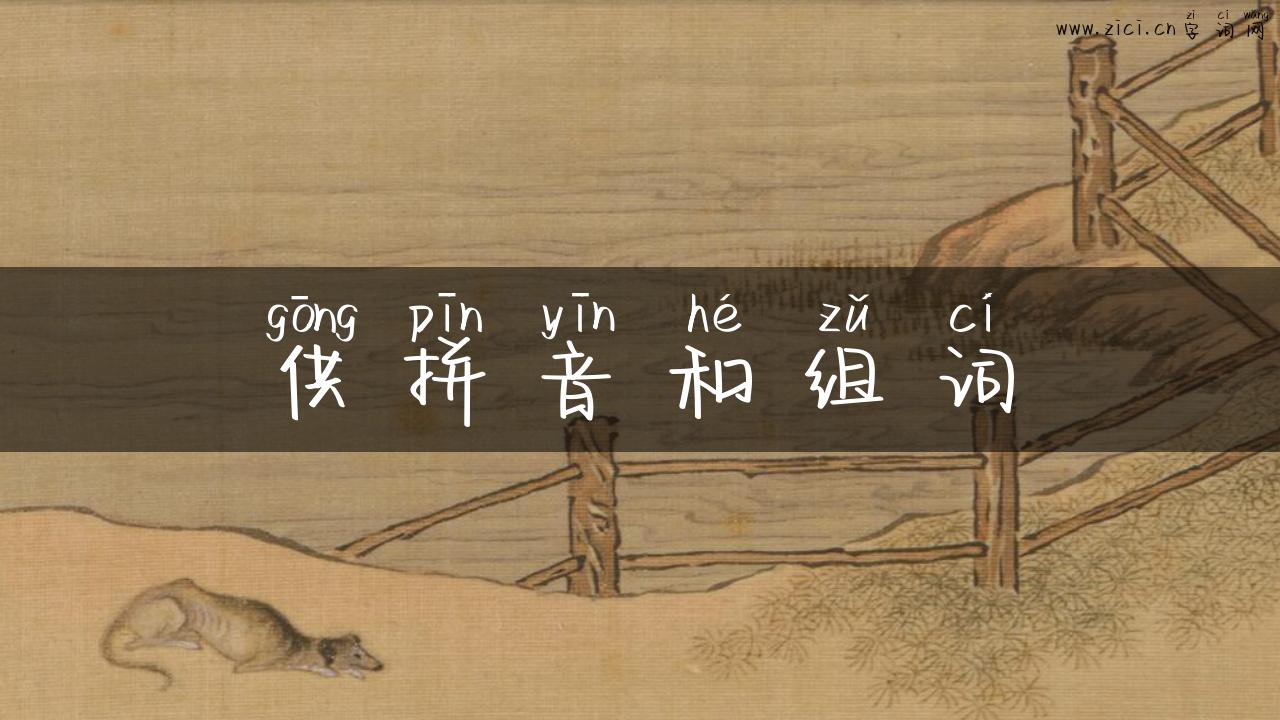 zì cí wǎng
www.zici.cn 字词网
gōng pīn yīn hé zǔ cí
供拼音和组词